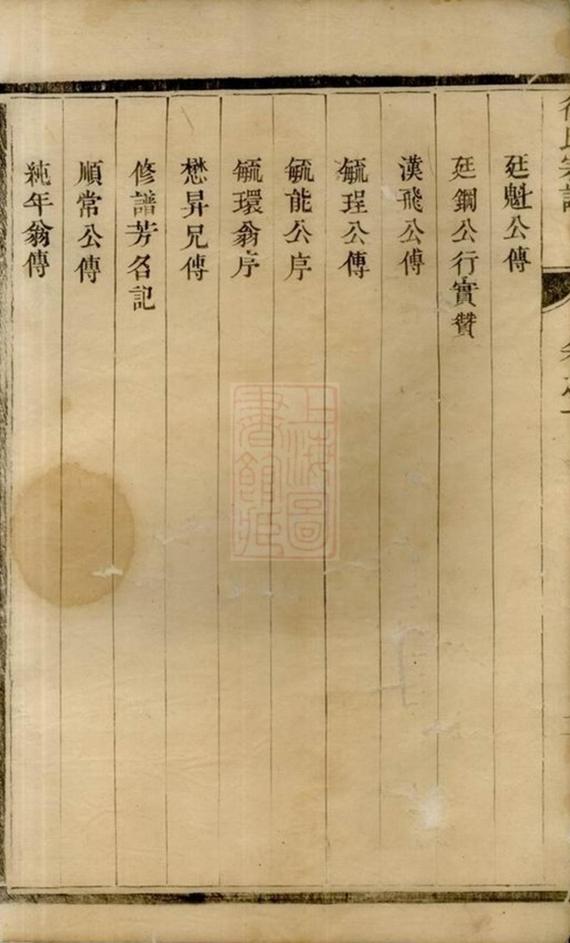 廷魁公傳
廷鋼公行實贊
漢飛公傳
毓珵公傳
毓能公序
毓環翁序
懋昇兄傳
修譜芳名記
順常公傳
純年翁傳
上海圖書館藏